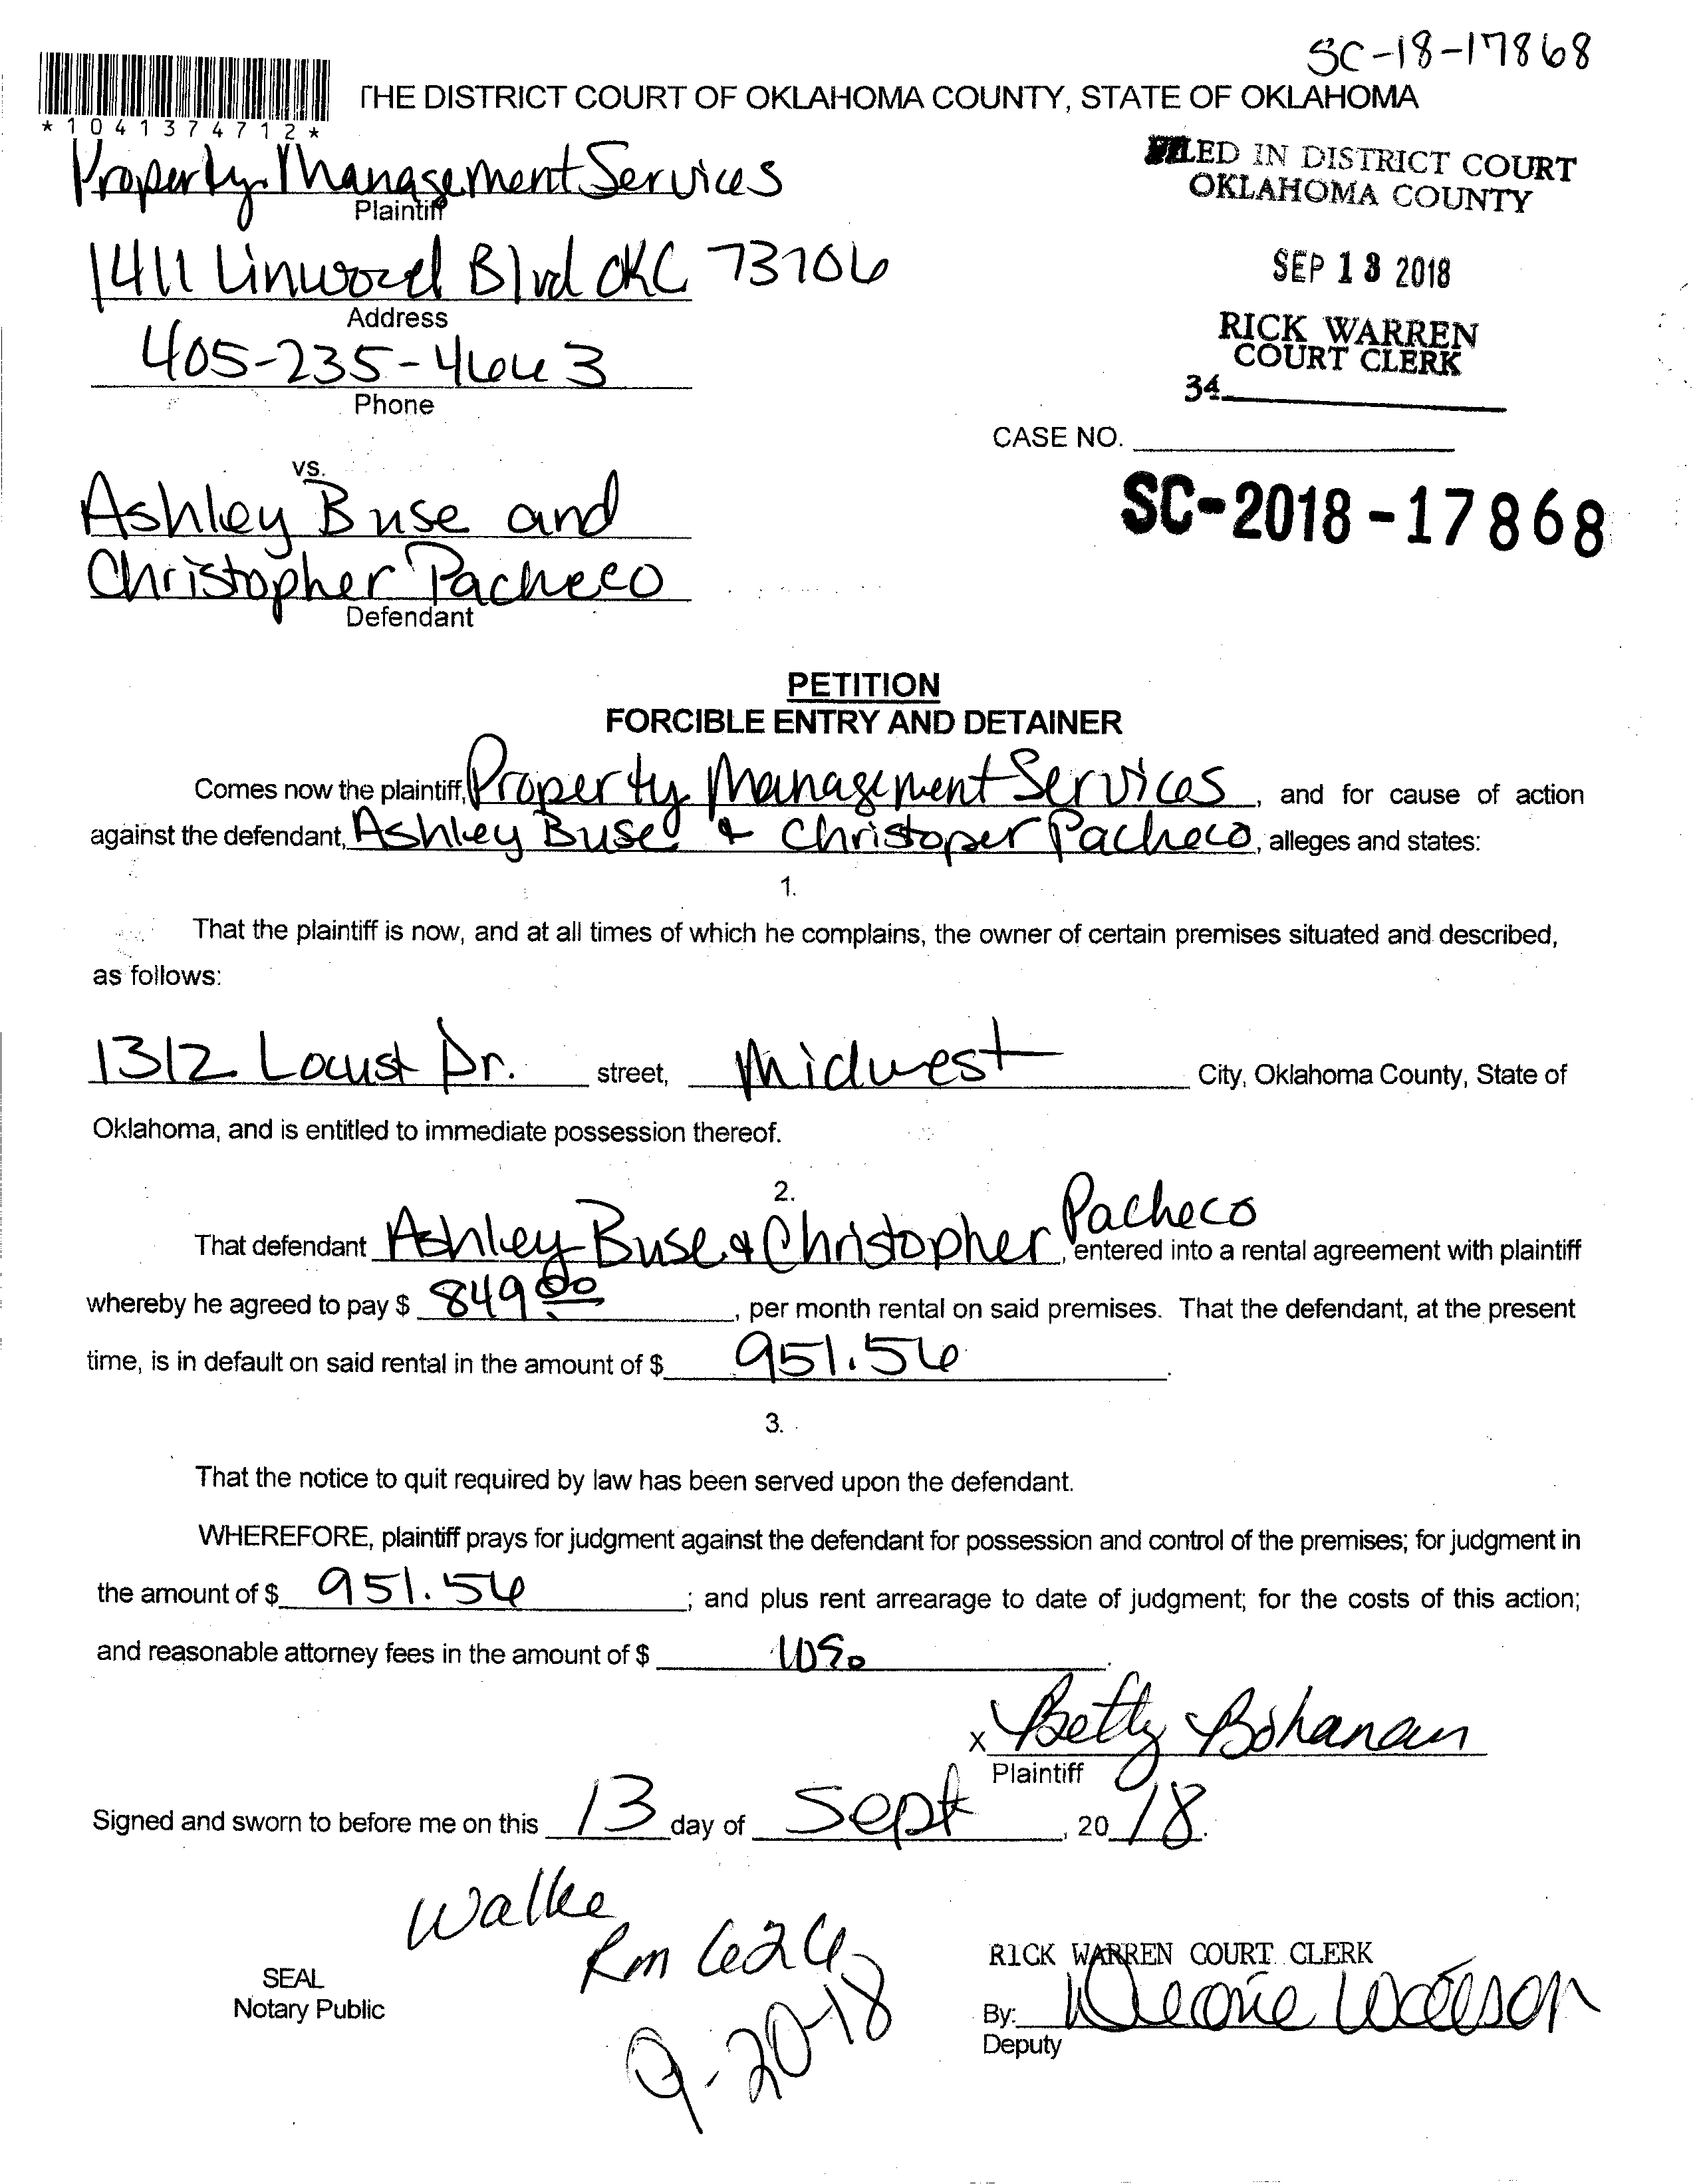 SC-18-17868
THE DISTRICT COURT OF OKLAHOMA COUNTY, STATE OF OKLAHOMA
*1041374712*
Property Management Services
Plaintiff
FILED IN DISTRICT COURT
OKLAHOMA COUNTY
1411 Linwood Blvd OKC 73106
Address
SEP 13 2018
405-235-4643
Phone
RICK WARREN
COURT CLERK
34
CASE NO.
vs.
SC-2018-17868
Ashley Buse and
Christopher Pacheco
Defendant
PETITION
FORCIBLE ENTRY AND DETAINER
Comes now the plaintiff, Property Management Services, and for cause of action
against the defendant, Ashley Buse & Christoper Pacheco, alleges and states:
1.
That the plaintiff is now, and at all times of which he complains, the owner of certain premises situated and described,
as follows:
1312 Locust Dr. street, Midwest City, Oklahoma County, State of
Oklahoma, and is entitled to immediate possession thereof.
2.
That defendant Ashley Buse & Christopher Pacheco, entered into a rental agreement with plaintiff
whereby he agreed to pay $ 849.00, per month rental on said premises. That the defendant, at the present
time, is in default on said rental in the amount of $ 951.56.
3.
That the notice to quit required by law has been served upon the defendant.
WHEREFORE, plaintiff prays for judgment against the defendant for possession and control of the premises; for judgment in
the amount of $ 951.56; and plus rent arrearage to date of judgment; for the costs of this action;
and reasonable attorney fees in the amount of $ 10%.
x Betty Bohanan
Plaintiff
Signed and sworn to before me on this 13 day of Sept, 2018.
Walke
Rm 626
9-20-18
SEAL
Notary Public
RICK WARREN COURT CLERK
By:
Deputy